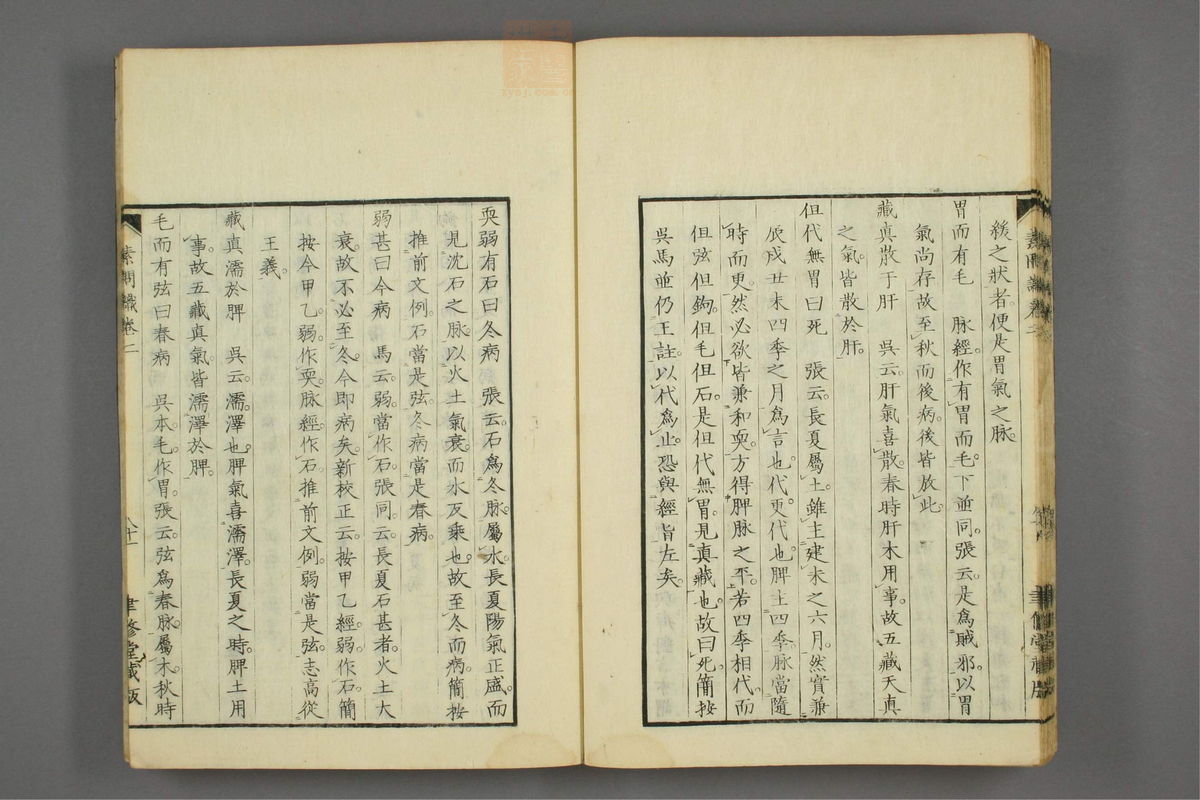 緩之狀者便是胃氣之脉
胃而有毛　脉經作有胃而毛下並同張云是爲賊邪以胃
氣尚存故至秋而後病後皆放此
藏真散于肝　吳云肝氣喜散春時肝木用事故五藏天真
之氣皆散於肝
但代無胃曰死　張云長夏屬土雖主建未之六月然實兼
辰戌丑未四季之月爲言也代更代也脾主四季脉當隨
時而更然必欲皆兼和耎方得脾脉之平若四季相代而
但弦但鉤但毛但石是但代無胃見真藏也故曰死簡按
吳馬並仍王註以代爲止恐與經旨左矣
耎弱有石曰冬病　張云石爲冬脉屬水長夏陽氣正盛而
見沈石之脉以火土氣衰而水反乘也故至冬而病簡按
推前文例石當是弦冬病當是春病
弱甚曰今病　馬云弱當作石張同云長夏石甚者火土大
衰故不必至冬今即病矣新校正云按甲乙經弱作石簡
按今甲乙弱作耎脉經作石推前文例弱當是弦志高從
王義
藏真濡於脾　吳云濡澤也脾氣喜濡澤長夏之時脾土用
事故五藏真氣皆濡澤於脾
毛而有弦曰春病　吳本毛作胃張云弦爲春脉屬木秋時
素問識卷二
八十一
聿修堂藏版